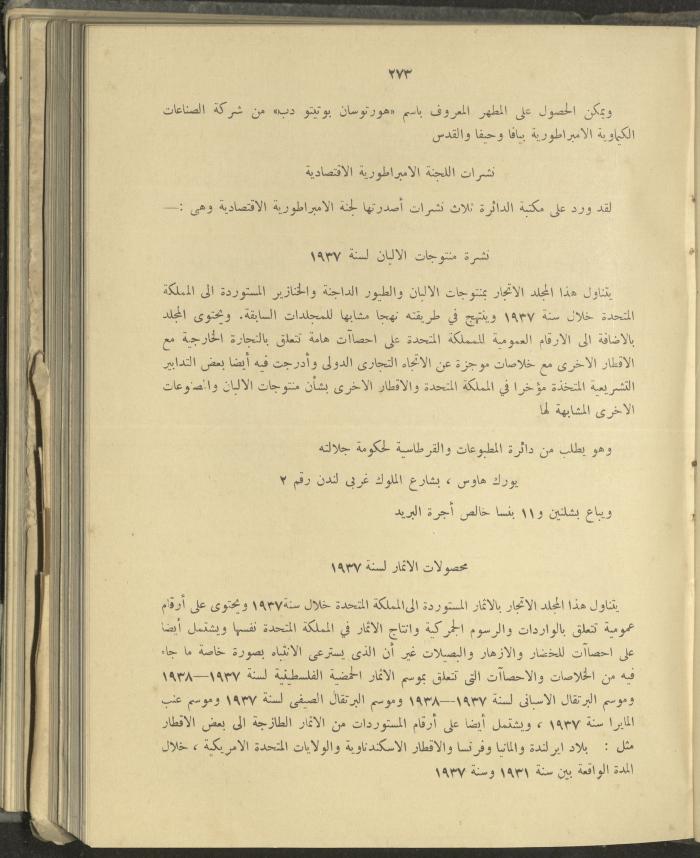 ٢٧٣
ويمكن الحصول على المطهر المعروف باسم «هورتوسان بوتيتو دب» من شركة الصناعات
الكيماوية الامبراطورية بيافا وحيفا والقدس
نشرات اللجنة الامبراطورية الاقتصادية
لقد ورد على مكتبة الدائرة ثلاث نشرات أصدرتها لجنة الامبراطورية الاقتصادية وهى :—
نشرة منتوجات الالبان لسنة ١٩٣٧
يتناول هذا المجلد الاتجار بمنتوجات الالبان والطيور الداجنة والخنازير المستوردة الى المملكة
المتحدة خلال سنة ١٩٣٧ وينتهج في طريقته نهجا مشابها للمجلدات السابقة. ويحتوى المجلد
بالاضافة الى الارقام العمومية للمملكة المتحدة على احصاآت هامة تتعلق بالتجارة الخارجية مع
الاقطار الاخرى مع خلاصات موجزة عن الاتجاه التجارى الدولى وأدرجت فيه أيضا بعض التدابير
التشريعية المتخذة مؤخرا في المملكة المتحدة والاقطار الاخرى بشأن منتوجات الالبان والمصنوعات
الاخرى المشابهة لها
وهو يطلب من دائرة المطبوعات والقرطاسية لحكومة جلالته
يورك هاوس ، بشارع الملوك غربى لندن رقم ٢
ويباع بشلنين و١١ بنسا خالص أجرة البريد
محصولات الاثمار لسنة ١٩٣٧
يتناول هذا المجلد الاتجار بالاثمار المستوردة الى المملكة المتحدة خلال سنة ١٩٣٧ ويحتوى على أرقام
عمومية تتعلق بالواردات والرسوم الجمركية وانتاج الاثمار في المملكة المتحدة نفسها ويشتمل أيضا
على احصاآت للخضار والازهار والبصيلات غير أن الذى يسترعى الانتباه بصورة خاصة ما جاء
فيه من الخلاصات والاحصاآت التى تتعلق بموسم الاثمار الحمضية الفلسطينية لسنة ١٩٣٧—١٩٣٨
وموسم البرتقال الاسبانى لسنة ١٩٣٧—١٩٣٨ وموسم البرتقال الصيفى لسنة ١٩٣٧ وموسم عنب
المايرا سنة ١٩٣٧ ، ويشتمل أيضا على أرقام المستوردات من الاثمار الطازجة الى بعض الاقطار
مثل : بلاد ايرلندة والمانيا وفرنسا والاقطار الاسكندناوية والولايات المتحدة الامريكية ، خلال
المدة الواقعة بين سنة ١٩٣١ وسنة ١٩٣٧